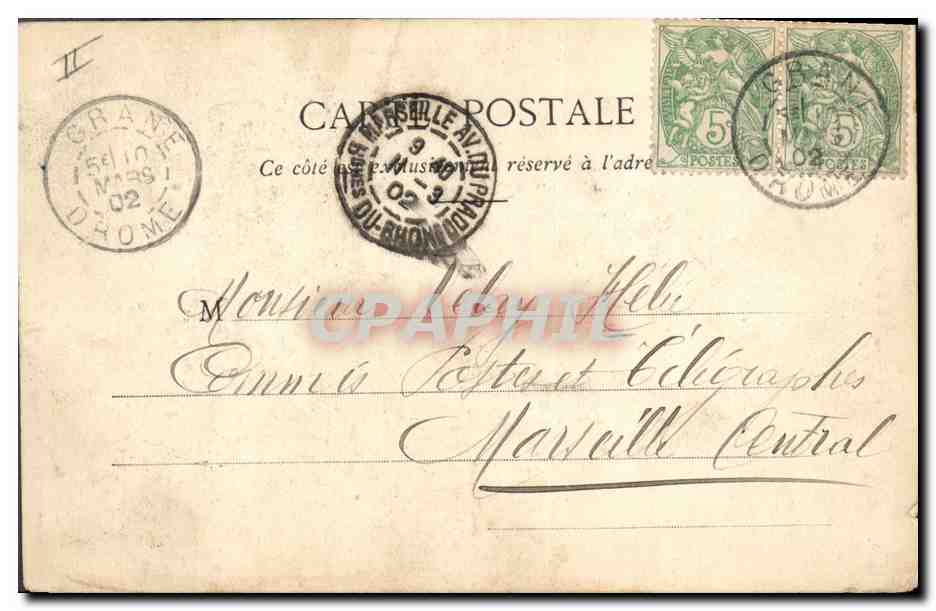 II
CARTE POSTALE
Ce côté est exclusivement réservé à l'adre
GRANE
5E 10
MARS
02
DROME
MARSEILLE AV. DU PRADO
BOUCHES DU-RHONE
9
11 - 3
02
5c
POSTES
5c
POSTES
GRANE
02
DROME
M Monsieur Hélu
Commis Postes et Télégraphes
Marseille Central
CPAPHIL